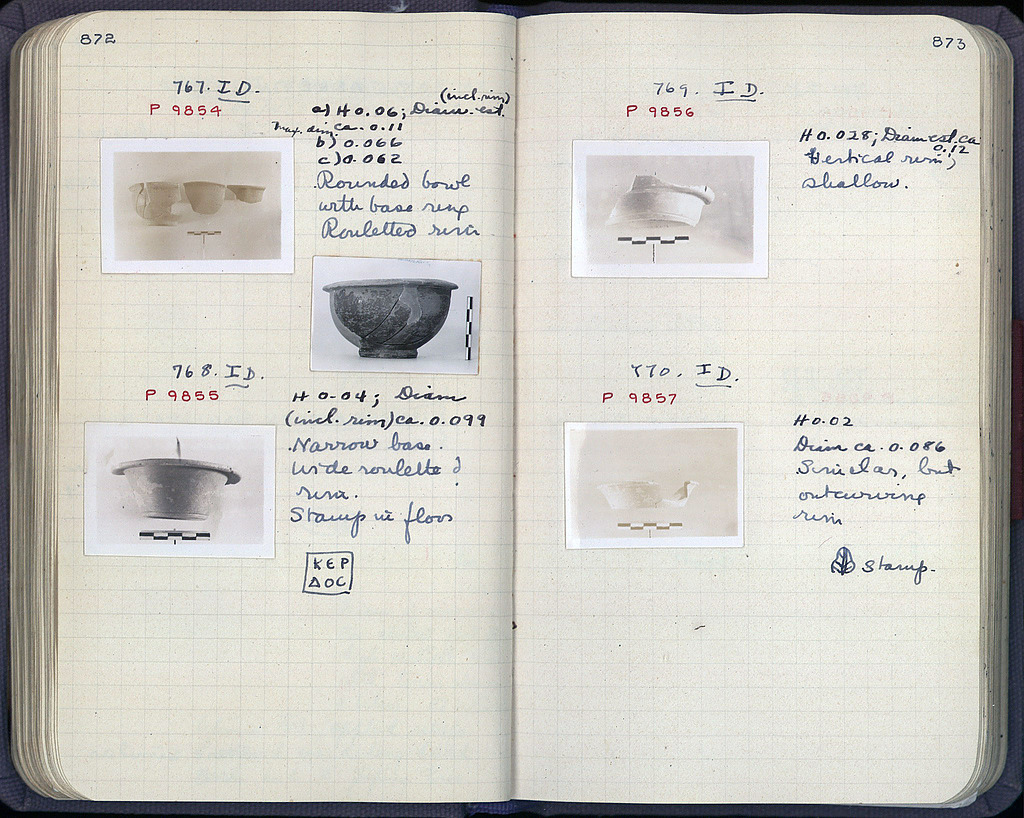 872
767. I D.
P 9854
(incl. rim)
a) H 0.06; Diam. est.
max. dim. ca. 0.11
b) 0.066
c) 0.062
Rounded bowl
with base ring
Rouletted rim
768. I D.
P 9855
H 0.04; Diam
(incl. rim) ca. 0.099
Narrow base.
Wide rouletted
rim.
Stamp in floor
ΚΕΡ
ΔΟC
873
769. I D.
P 9856
H 0.028; Diam est. ca
0.12
Vertical rim;
shallow.
770. I D.
P 9857
H 0.02
Diam ca. 0.086
Similar, but
outcurving
rim
stamp.